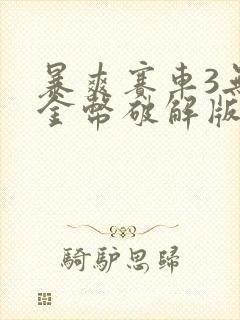 暴爽賽車3無
金幣破解版
騎驢思歸